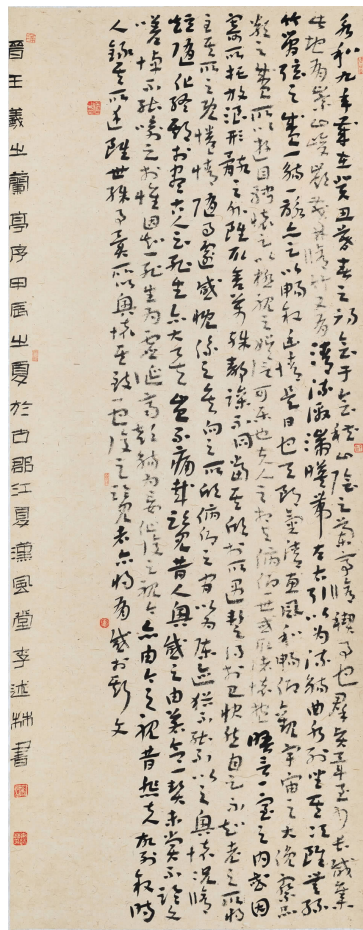 永和九年歲在癸丑暮春之初會于會稽山陰之蘭亭脩禊事也群賢畢至少長咸集
此地有崇山峻嶺茂林脩竹又有清流激湍暎帶左右引以為流觴曲水列坐其次雖無絲
竹管弦之盛一觴一詠亦足以暢敘幽情是日也天朗氣清惠風和暢仰觀宇宙之大俯察品
類之盛所以遊目騁懷足以極視聽之娛信可樂也夫人之相與俯仰一世或取諸懷抱悟言一室之內或因
寄所託放浪形骸之外雖取舍萬殊靜躁不同當其欣於所遇暫得於己快然自足不知老之將
至及其所之既惓情隨事遷感慨係之矣向之所欣俛仰之間以為陳迹猶不能不以之興懷況脩
短隨化終期於盡古人云死生亦大矣豈不痛哉每覽昔人興感之由若合一契未嘗不臨文
嗟悼不能喻之於懷固知一死生為虛誕齊彭殤為妄作後之視今亦由今之視昔悲夫故列敘時
人錄其所述雖世殊事異所以興懷其致一也後之覽者亦將有感於斯文
晉王羲之蘭亭序甲辰之夏於古郡江夏漢風堂李述林書